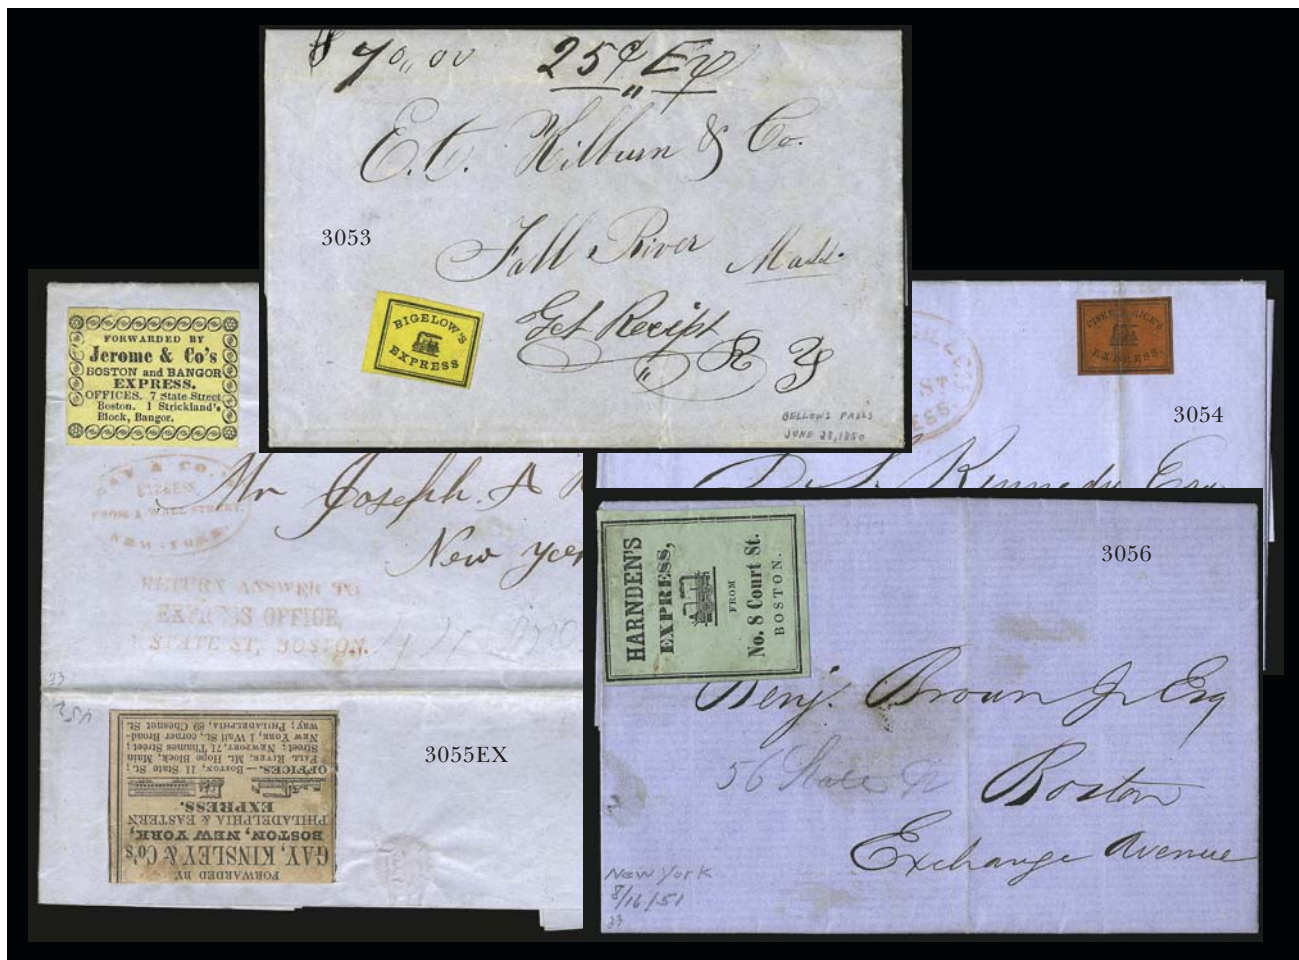 $ 70,,00 25¢ Ex
E. C. Kilburn & Co.
3053
Fall River Mass.
BIGELOW'S
EXPRESS
Get Receipt
BELLOWS FALLS
JUNE 28, 1850
FORWARDED BY
Jerome & Co's
BOSTON and BANGOR
EXPRESS.
OFFICES. 7 State Street
Boston. 1 Strickland's
Block, Bangor.
& CO.,
EXPRESS
FROM 1 WALL STREET,
NEW-YORK
Mr Joseph. A
New York
RETURN ANSWER TO
EXPRESS OFFICE,
STATE ST, BOSTON.
FORWARDED BY
GAY, KINSLEY & CO'S
BOSTON, NEW YORK,
PHILADELPHIA & EASTERN
EXPRESS.
OFFICES.—BOSTON, 11 State St.;
FALL RIVER, Mt. Hope Block, Main
Street; NEWPORT, 71 Thames Street;
NEW YORK, 1 Wall St., corner Broad-
way; PHILADELPHIA, 89 Chesnut St.
3055EX
FISKE & RICE'S
EXPRESS.
3054
Kennedy Esq.
HARNDEN'S
EXPRESS,
FROM
No. 8 Court St.
BOSTON.
3056
Benj. Brown Jr Esq
56 State St
Boston
Exchange Avenue
New York
8/16/51
33